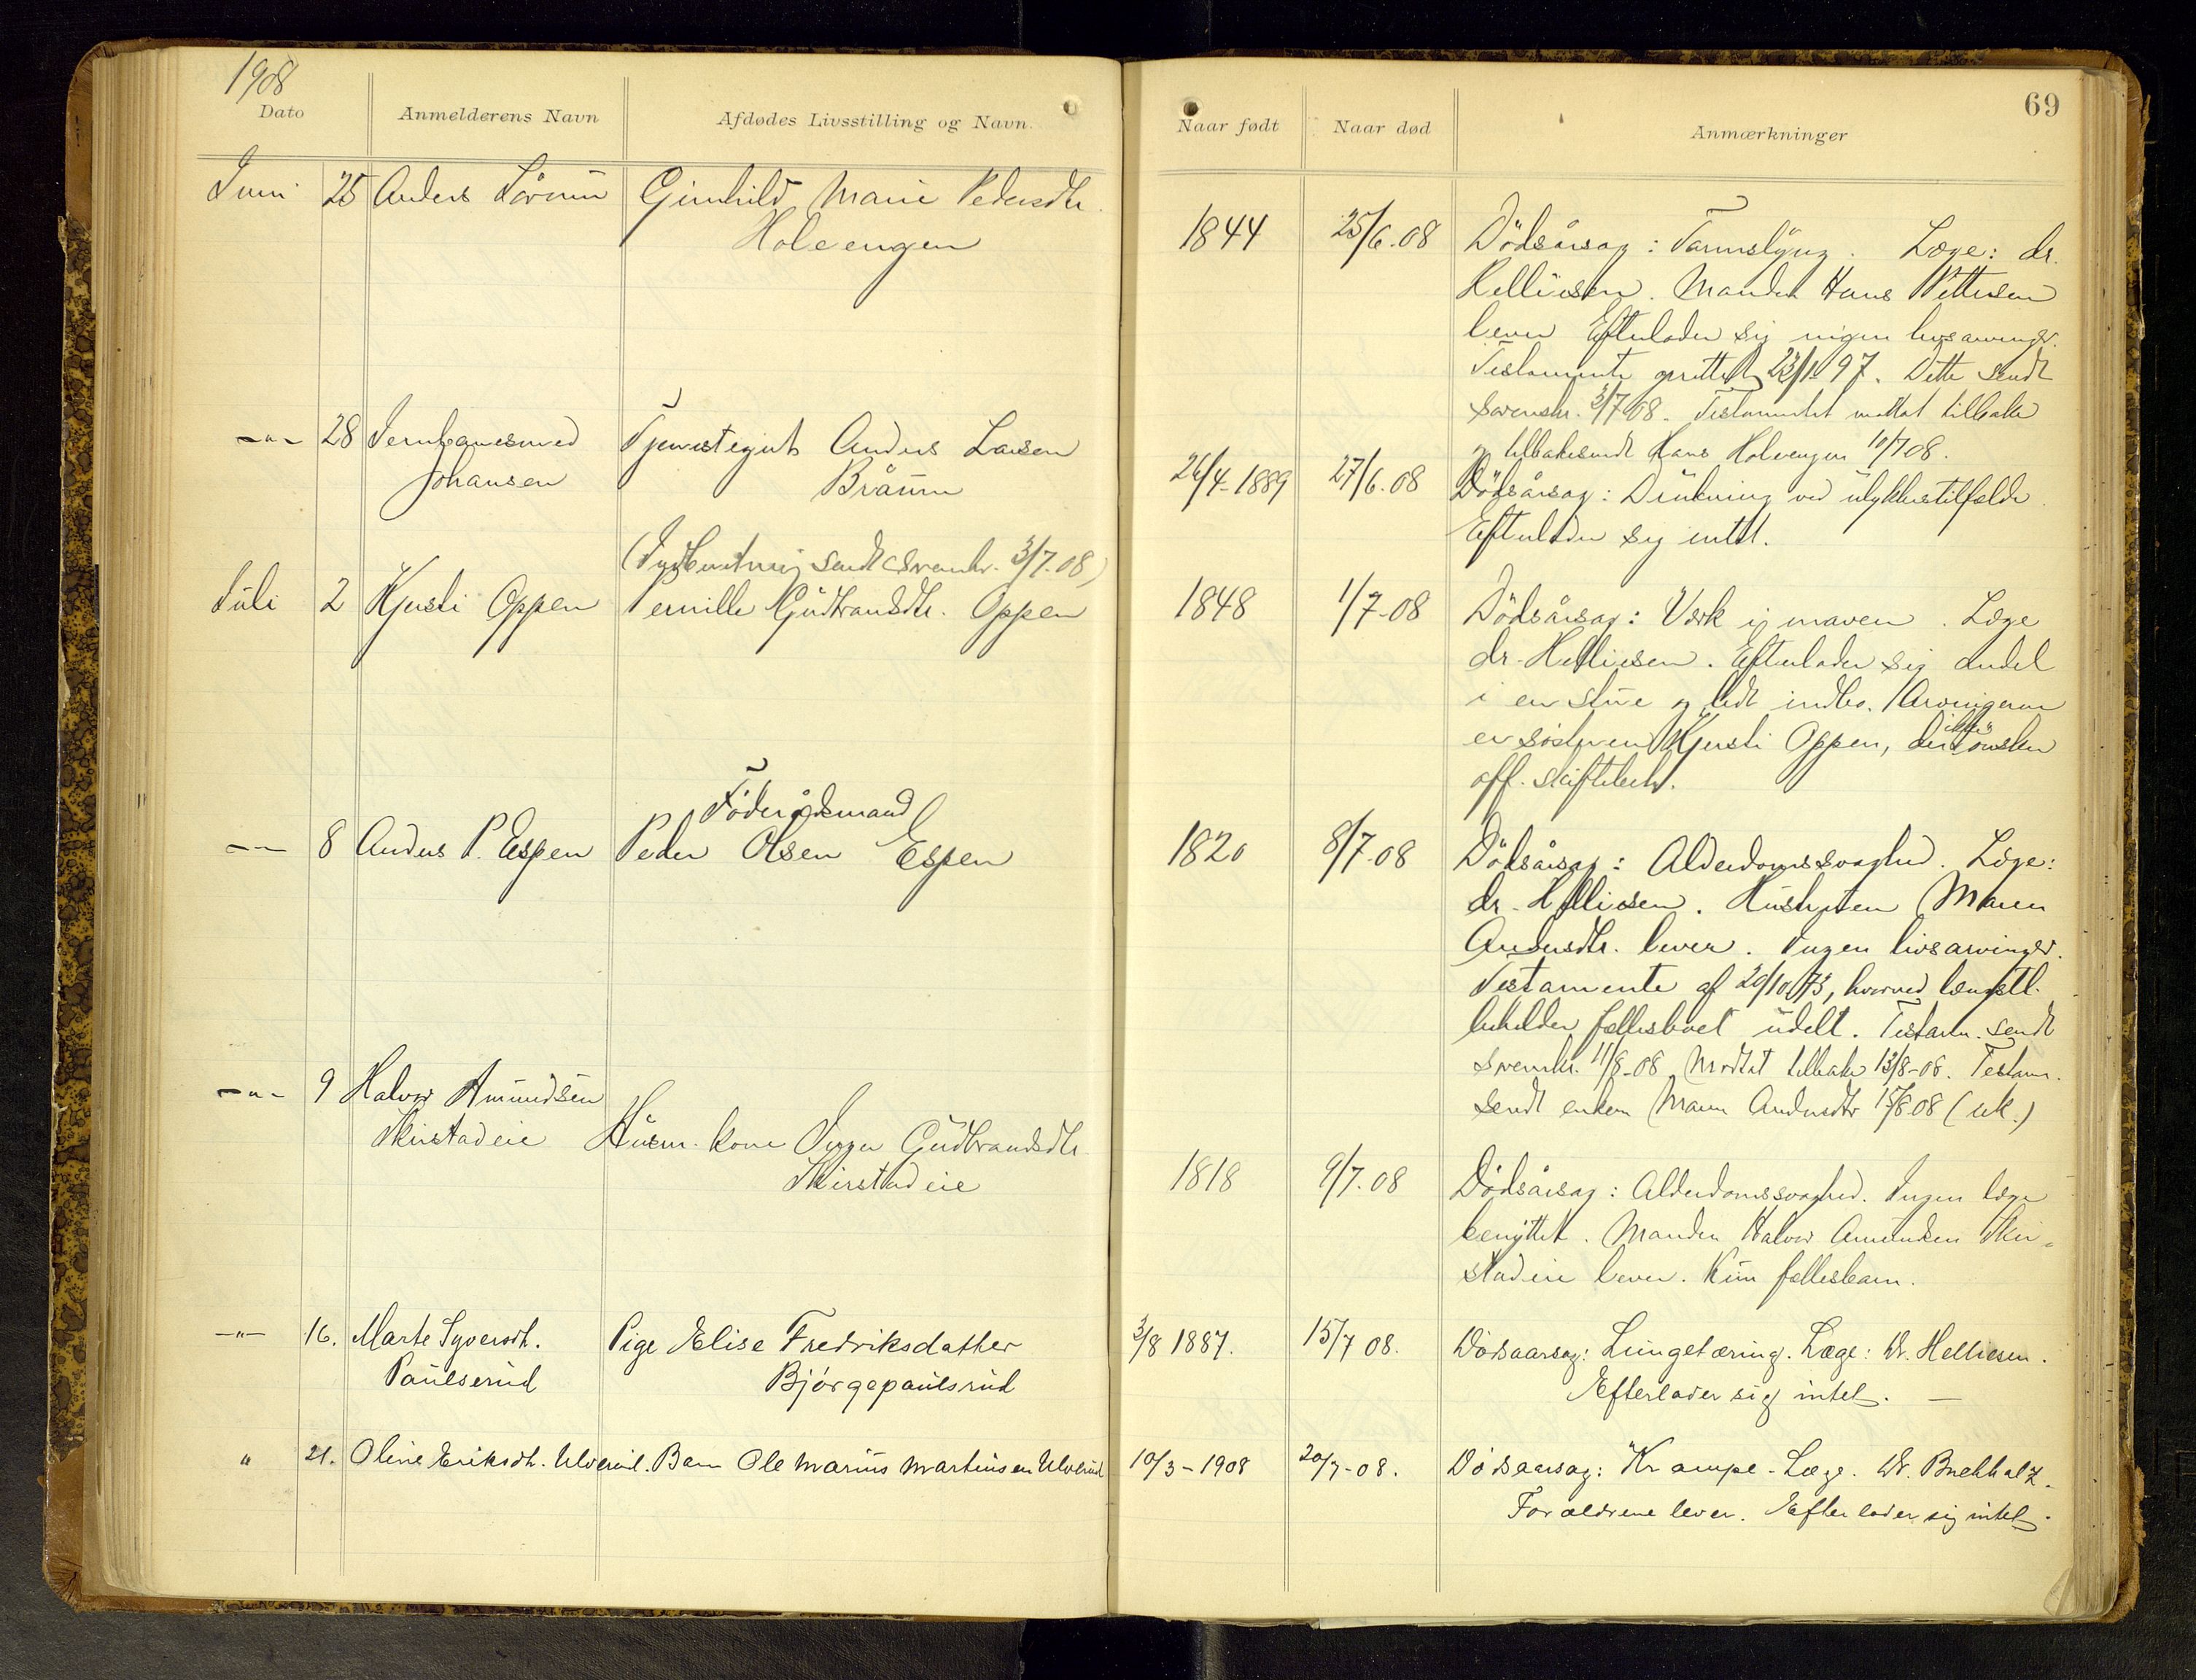 1908
69
Dato
Anmelderens Navn
Afdødes Livsstilling og Navn.
Naar født
Naar død
Anmærkninger
Juni 25 Anders Gunhild Marie Pedersdtr.
Holeengen
1844 25/6.08 Dödsårsag: Tarmslyng. Læge: dr.
Helliesen. Manden Hans Pettersen
lever Efterlader sig ingen livsarvinger.
Testamente oprettet 23/1 97. Dette sendt
Sorenskr. 3/7 08. Testamentet mottat tilbake
og tilbakesendt Hans Holeengen 10/7 08.
-"- 28 Jernbanesmed Tjenestegut Anders Larsen
Johansen Bråum
26/4-1889 27/6.08 Dödsårsag: Drukning ved ulykkestilfælde.
Efterlader sig intet.
(Indberetning sendt Sorenskr. 3/7.08)
Juli 2 Kjersti Oppen Pernille Gudbrandsdtr. Oppen
1848 1/7-08 Dödsårsag: Værk i maven. Læge
dr. Helliesen. Efterlader sig andel
i en stue og lidt indbo. Arvingerne
er søsteren Kjersti Oppen, der ikke önsker
off. skiftebeh.
Föderådsmand
-"- 8 Anders P. Espen Peder Olsen Espen
1820 8/7-08 Dödsårsag: Alderdomssvaghed. Læge:
dr. Helliesen. Hustruen Maren
Andersdtr. lever. Ingen livsarvinger.
Testamente af 20/10 73, hvorved længstl.
beholder fællesboet udelt. Testam. sendt
Sorenskr. 11/8-08 Modtat tilbake 13/8-08. Testam.
sendt enken Maren Andersdtr 15/8 08 (rek.)
-"- 9 Halvor Amundsen
Skirstadeie Husm. kone Inger Gudbrandsdtr.
Skirstadeie
1818 9/7.08 Dödsårsag: Alderdomssvaghed. Ingen læge
benyttet. Manden Halvor Amundsen Skir-
stadeie lever. Kun fællesbarn.
-"- 16. Marte Syversdt. Pige Elise Fredriksdatter
Paulserud Bjørgepaulsrud
3/8 1887. 15/7 08. Dødsaarsag: Lungetæring. Læge: Dr. Helliesen.
Efterlader sig intet. —
" 21. Oline Eriksdt. Ulverud. Barn Ole Marius Martinsen Ulverud
10/3-1908 20/7-08. Dødsaarsag: Krampe. Læge. Dr. Buchholz.
Forældrene lever. Efterlader sig intet.